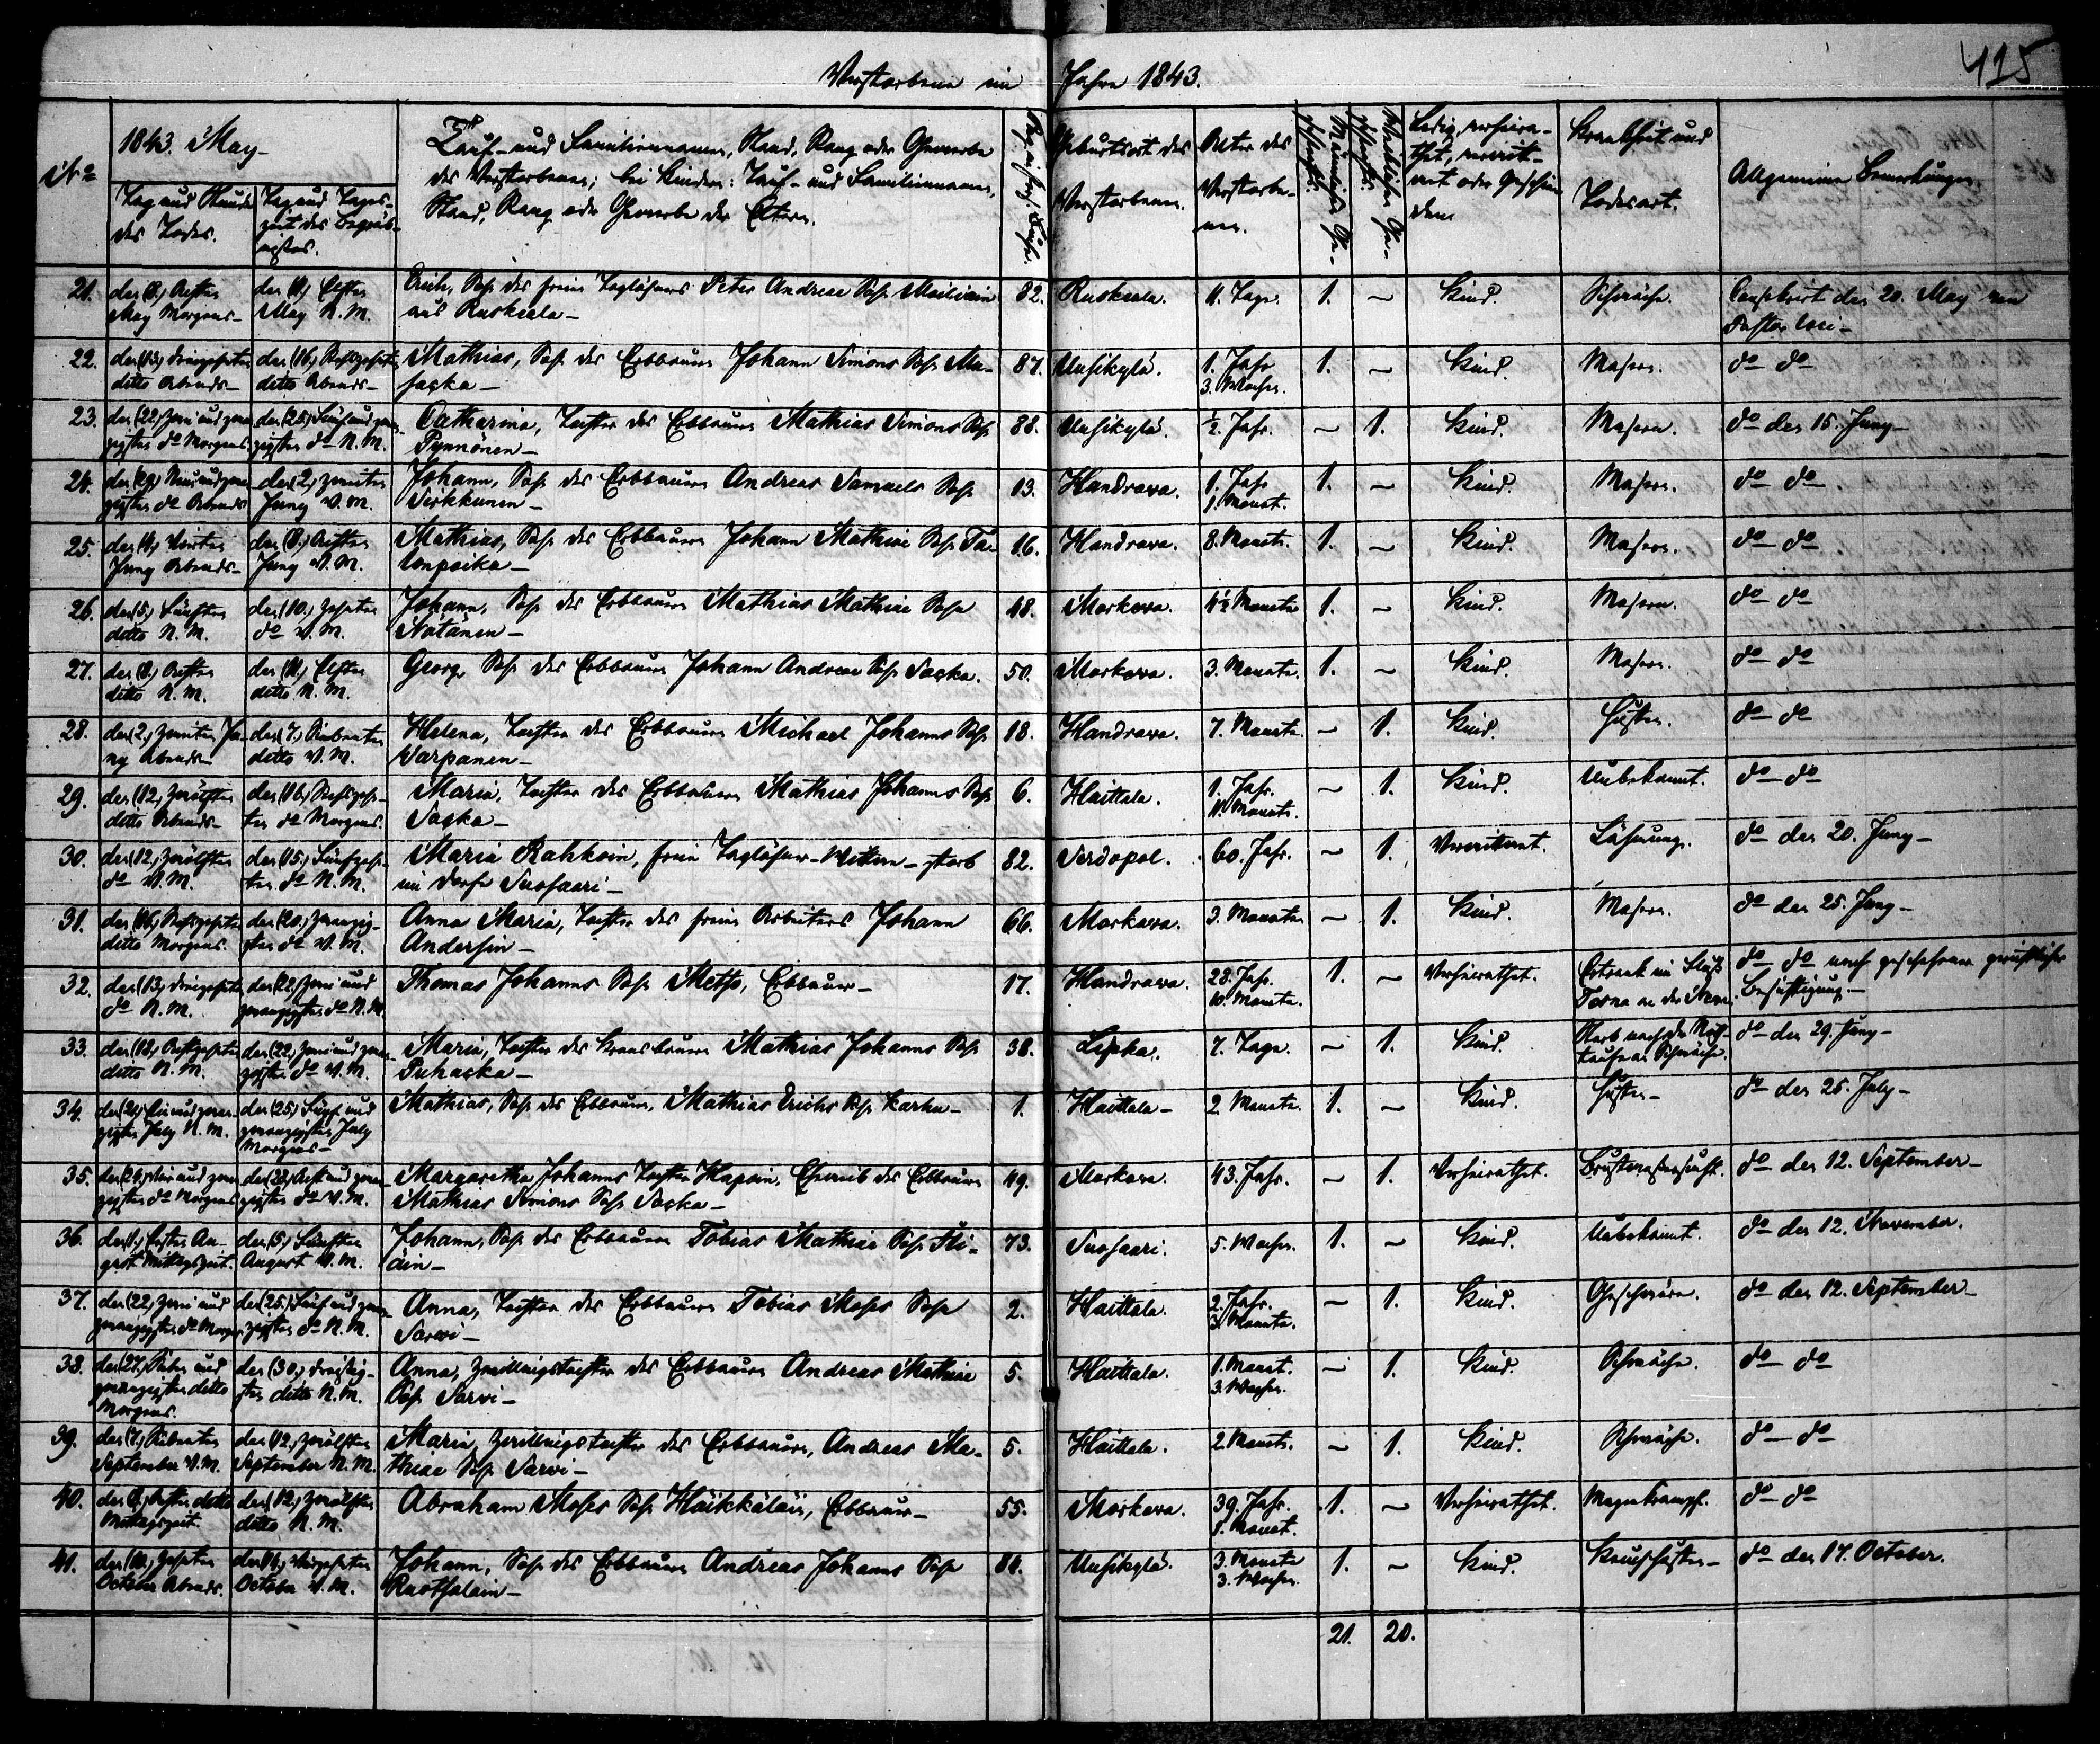 415
Verstorbene im Jahre 1843.
No
1843. May
Tag und Stunde
des Todes.
Tag und Tages-
zeit des Begräb-
nisses.
Tauf- und Familiennamen, Stand, Rang oder Gewerbe
des Verstorbenen; bei Kindern: Tauf- und Familiennamen,
Stand, Rang oder Gewerbe der Eltern.
Geburtsort des
Verstorbenen.
Alter des
Verstorbe-
nen.
Männliches Ge-
schlecht.
Weibliches Ge-
schlecht.
Ledig, verheira-
thet, verwitt-
wet oder geschie-
den
Krankheit und
Todesart.
Allgemeine Bemerkungen.
21. den (8.) Achten
May Morgens-
den (11.) Elften
May N. M.
Erich, Sohn des freien Taglöhners Peter Andreae Sohn
aus Ruskiala-
82. Ruskiala. 11. Tage. 1. - Kind. Schwäche. den 20. May von
Pastor loci-
22. den (13.) dreizehnten
detto Abends-
den (16.) Sechszehnten
detto Abends-
Mathias, Sohn des Erbbauern Johann Simons Sohn
87. Uusikylä. 1. Jahr
3. Wochen. 1. - Kind. Masern. do do
23. den (22.) Zwei und zwan-
zigsten do Morgens.
den (25.) Fünf und zwan-
zigsten do N. M.
Catharina, Tochter des Erbbauern Mathias Simons Sohn
Pynnönen-
88. Uusikylä. ½ Jahr. - 1. Kind. Masern. do den 15. Juny-
24. den (29.) Neun und zwan-
zigsten do Abends
den (2.) zweiten
Juny V. M.
Johann, Sohn des Erbbauern Andreas Samuels Sohn
Sirkkunen-
13. Handrawa. 1. Jahr
1. Monat. 1. - Kind. Masern. do do
25. den (4.) Vierten
Juny Abends-
den (8.) Achten
Juny V. M.
Mathias, Sohn des Erbbauern Johann Mathiae Sohn
16. Handrawa. 8. Monate. 1. - Kind. Masern. do do
26. den (5.) Fünften
detto N. M.
den (10.) Zehnten
do V. M.
Johann, Sohn des Erbbauern Mathias Mathiae Sohn
Nätänen-
48. Markowa. 4½ Monate 1. - Kind. Masern. do do
27. den (8.) Achten
detto N. M.
den (11.) Elften
detto N. M.
Georg, Sohn des Erbbauern Johann Andreae Sohn Saçka.
50. Markowa. 3. Monate. 1. - Kind. Masern. do do
28. den (2.) Zweiten Ju-
ny Abends
den (7.) Siebenten
detto V. M.
Helena, Tochter des Erbbauern Michael Johanns Sohn
Warpanen-
18. Handrawa. 7. Monate. - 1. Kind. Husten. do do
29. den (12.) Zwölften
detto Abends-
den (16.) Sechszehn-
ten do Morgens.
Maria, Tochter des Erbbauern Mathias Johanns Sohn
Saçka-
6. Haittala. 1. Jahr.
11. Monate. - 1. Kind. Unbekannt. do do
30. den (12.) Zwölften
do V. M.
den (15.) Fünfzehn-
ten do N. M.
Maria Rahkoin, freie Taglöhner-Wittwe-starb
im Dorfe Suosaari-
82. Serdopol. 60. Jahr. - 1. Verwittwet. Lähmung. do den 20. Juny-
31. den (16.) Sechszehnten
detto Morgens.
den (20.) zwanzig-
sten do V. M.
Anna Maria, Tochter des freien Arbeiters Johann
Andersin-
66. Markowa. 3. Monate - 1. Kind. Masern. do den 25. Juny-
32. den (13.) dreizehnten
do N. M.
den (22.) Zwei und
zwanzigsten do N. M.
Thomas Johanns Sohn Metso, Erbbauer-
17. Handrawa. 28. Jahr.
10. Monate. 1. - Verheirathet. Ertrank im Fluss
Tosna an der Newa. do do nach geschehener gerichtlicher
Besichtigung.-
33. den (18.) Achtzehnten
detto N. M.
den (22.) Zwei und zwan-
zigsten do V. M.
Maria, Tochter des Kronsbauern Mathias Johanns Sohn
38. Lipka. 7. Tage. - 1. Kind. Starb nach der Noth-
taufe an Schwäche. do den 29. Juny-
34. den (21.) Ein und zwan-
zigsten July N. M.
den (25.) Fünf und
zwanzigsten July
Morgens-
Mathias, Sohn des Erbbauern, Mathias Erichs Sohn Karhu-
1. Haittala- 2. Monate. 1. - Kind. Husten- do den 25. July-
35. den (24.) Vier und zwan-
zigsten do Morgens
den (28.) Acht und zwan-
zigsten do V. M.
Margaretha Johanns Tochter Hapoin, Eheweib des Erbbauern
Mathias Simons Sohn Saçka-
49. Markowa. 43. Jahr. - 1. Verheirathet. Brustwassersucht. do den 12. September-
36. den (1.) Ersten Au-
gust Mittagszeit.
den (5.) Fünften
August V. M.
Johann, Sohn des Erbbauern Tobias Mathiae Sohn
73. Suosaari. 5. Wochen. 1. - Kind. Unbekannt. do den 12. November.
37. den (22.) Zwei und
zwanzigsten do Morgens
den (25.) Fünf und zwan-
zigsten do N. M.
Anna, Tochter des Erbbauern Tobias Moses Sohn
Sarwi-
2. Haittala. 2. Jahr.
3. Monate. - 1. Kind. Geschwüre. do den 12. September-
38. den (27.) Sieben und
zwanzigsten detto
Morgens.
den (30.) dreissig-
sten detto N. M.
Anna, Zwillingstochter des Erbbauern Andreas Mathiae
Sohn Sarwi-
5. Haittala. 1. Monat.
3. Wochen. - 1. Kind. Schwäche. do do
39. den (7.) Siebenten
September V. M.
den (12.) Zwölften
September N. M.
Maria, Zwillingstochter des Erbbauern, Andreas Ma-
thiae Sohn Sarwi-
5. Haittala. 2. Monate. - 1. Kind. Schwäche. do do
40. den (8.) Achten detto
Mittagszeit.
den (12.) Zwölften
detto N. M.
Abraham Moses Sohn Häikkäläin, Erbbauer-
55. Markowa. 39. Jahr.
1. Monat. 1. - Verheirathet. Magenkrampf. do do
41. den (10.) Zehnten
October Abends.
den (14.) Vierzehnten
October V. M.
Johann, Sohn des Erbbauern Andreas Johanns Sohn
Ruotsalain-
84. Uusikylä. 3. Monate
3. Wochen. 1. - Kind. Keuchhusten- do den 17. October.
21. 20.